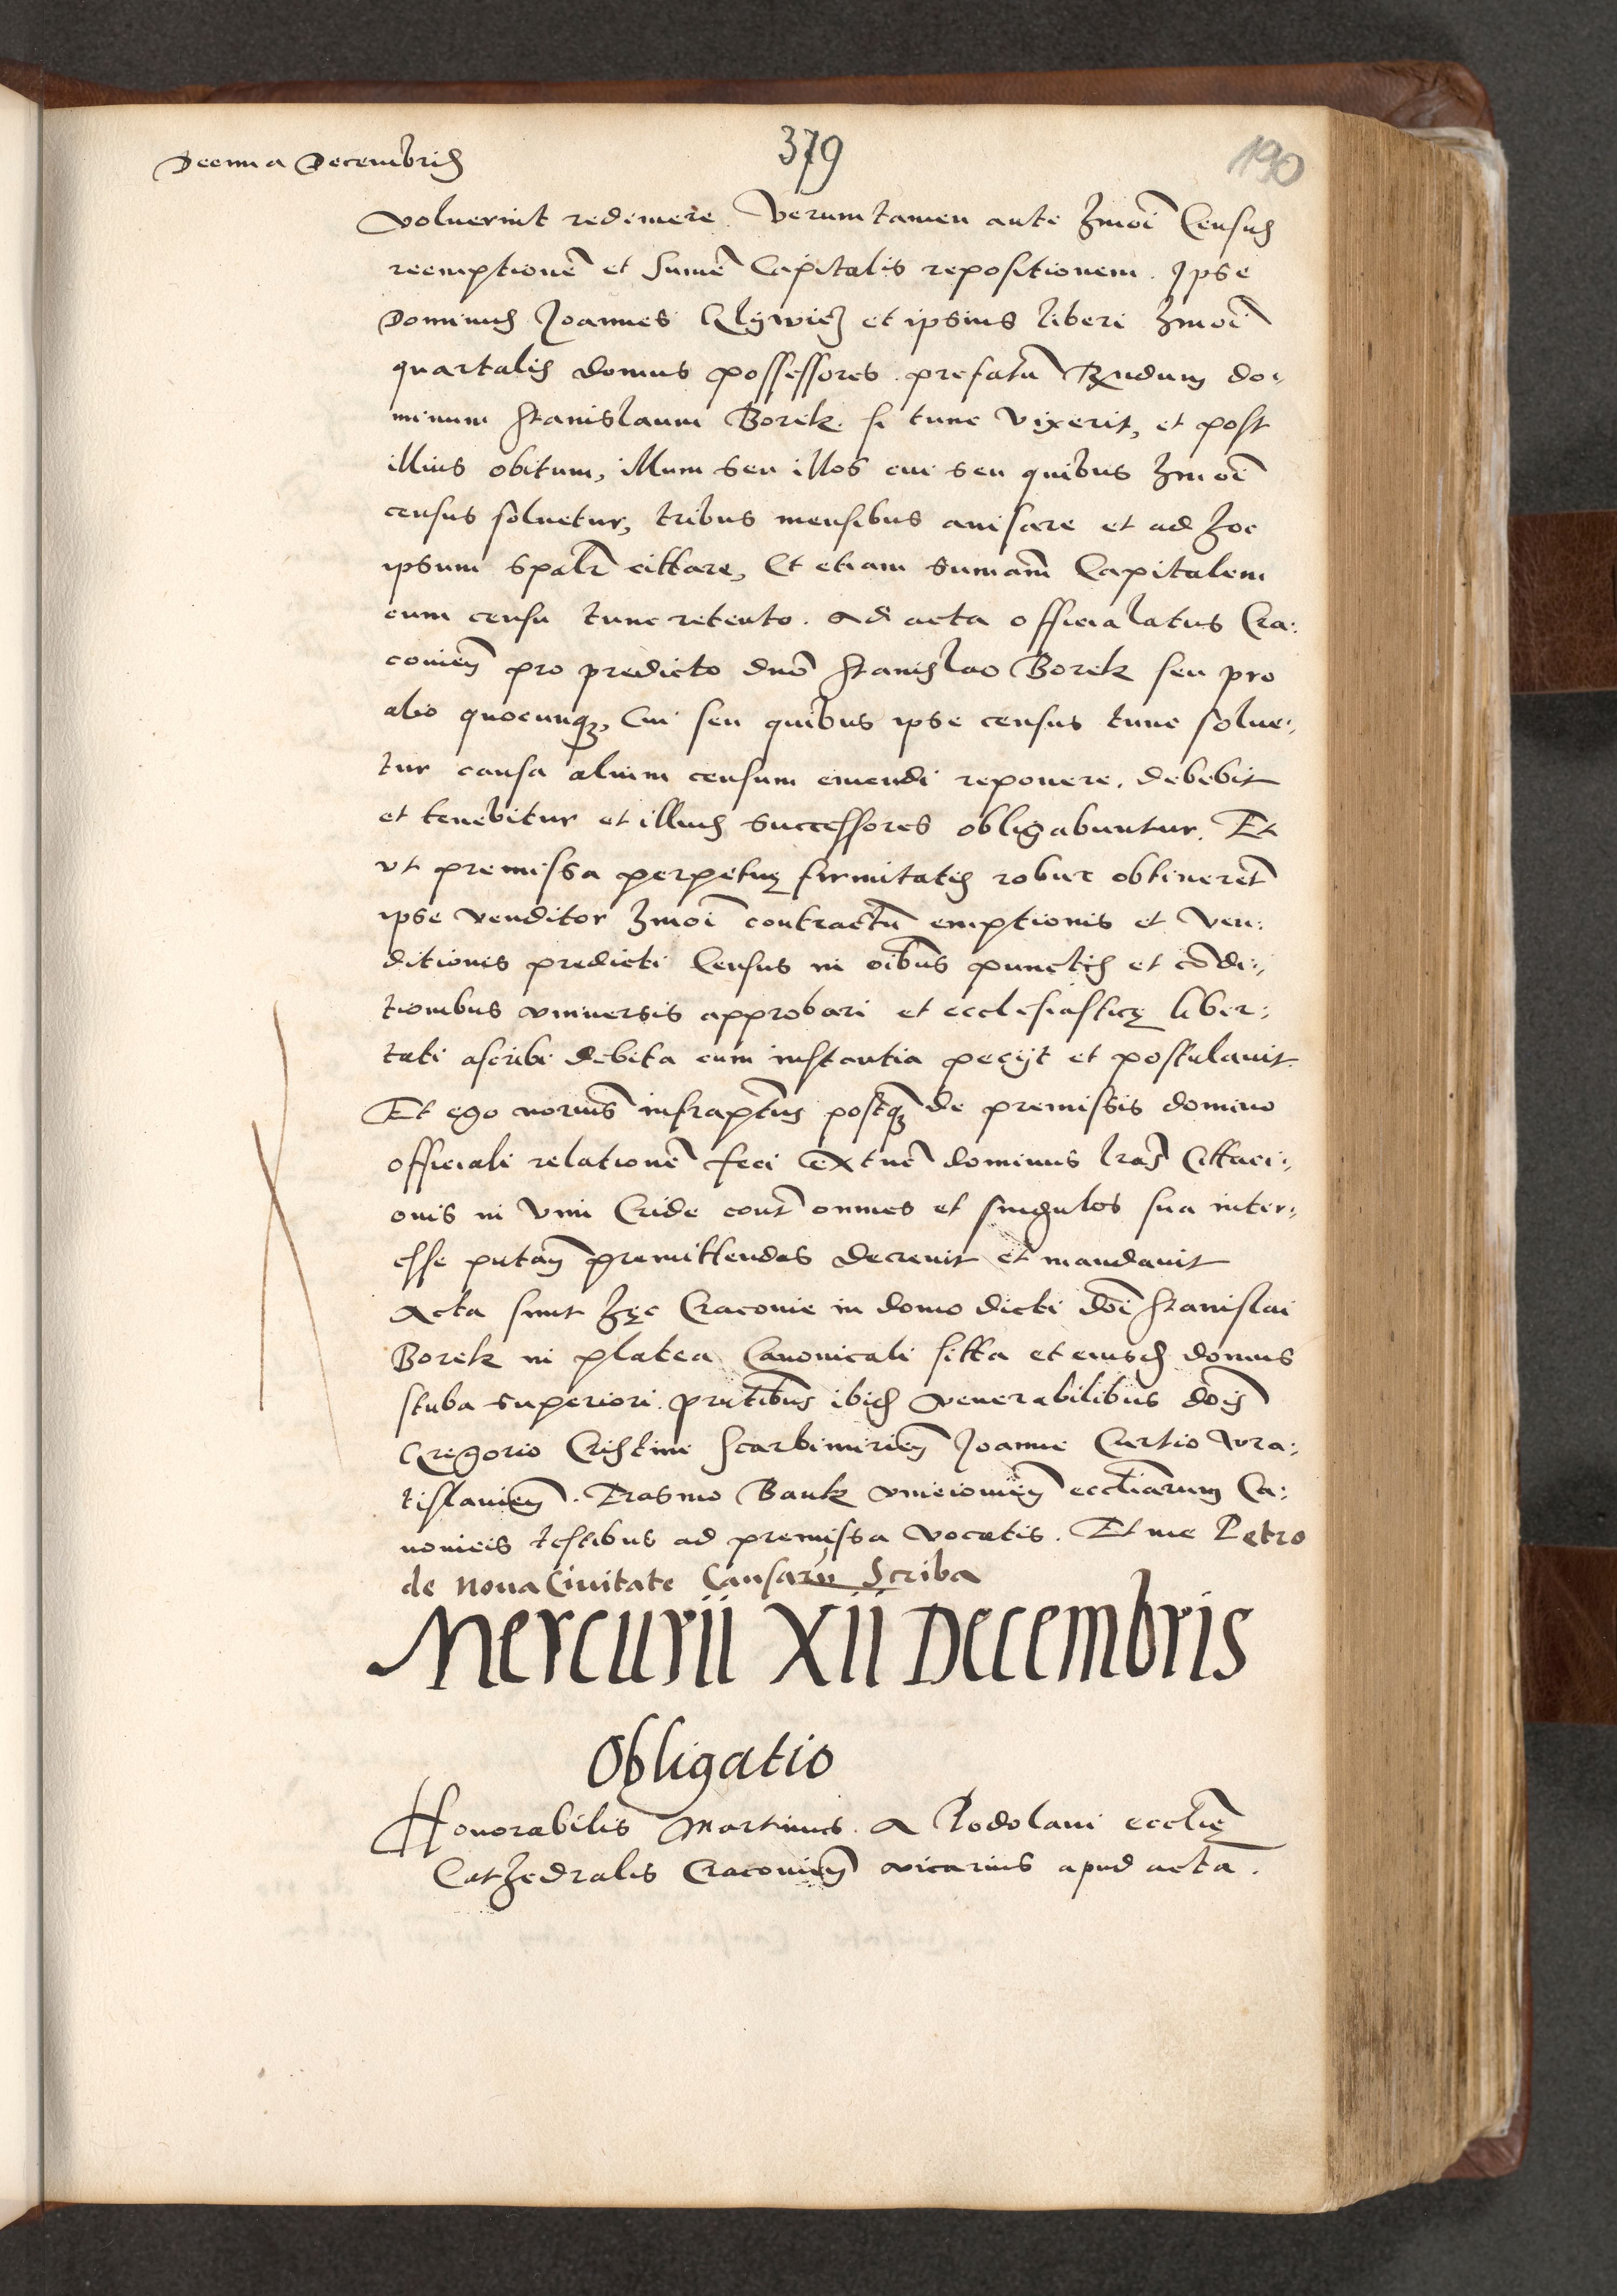 Decima Decembris
379
190
voluerint redimere. Verumtamen ante hmōi Census
reemptionē et sumē Capitalis repositionem. Ipse
Dominus Joannes Glywicz et ipsius liberi hmōi
quartalis domus possessores. prefatū Rndum do:
minum Stanislaum Borek. si tunc vixerit, et post
illius obitum, illum seu illos cui seu quibus hmōi
census soluetur, tribus mensibus auisare et ad hoc
ipsum spālr cittare, Et etiam sumām Capitalem
cum censu tunc retento. Ad acta officialatus Cra:
couieñ pro predicto dnō Stanislao Borek seu pro
alio quocunqz, Cui seu quibus ipse census tunc solue:
tur causa alium censum emendi reponere. debebit
et tenebitur et illius successores obligabuntur. Et
vt premissa perpetuę firmitatis robur obtinerēt
ipse venditor hmōi contractū emptionis et ven:
ditionis predicti Census in oībus punctis et cōdi:
tionibus vniuersis approbari et ecclesiasticę liber:
tati ascribi debita cum instantia pecijt et postulauit.
Et ego notius infraptus postqz de premissis domino
officiali relationē feci extūc dominus lras Cittaci:
onis in vim Cride contr omnes et singulos sua inter:
esse putañ premittendas decreuit et mandauit
Acta sunt hęc Cracouie in domo dicti dōi Stanislai
Borek in platea Canonicali sitta et eiusd domus
stuba superiori. pntibus ibid venerabilibus dōis
Gregorio Cristini Scarbimirieñ Joanne Curtio Wra:
tislauieñ. Erasmo Bank vneiouieñ eccliārum Ca:
nonicis testibus ad premissa vocatis. Et me Petro
de Noua Ciuitate Causarū Scriba
Mercurii xii Decembris
Obligatio
Honorabilis Martinus. a Podolani eccłię
Cathedralis Cracouieñ vicarius apud acta.